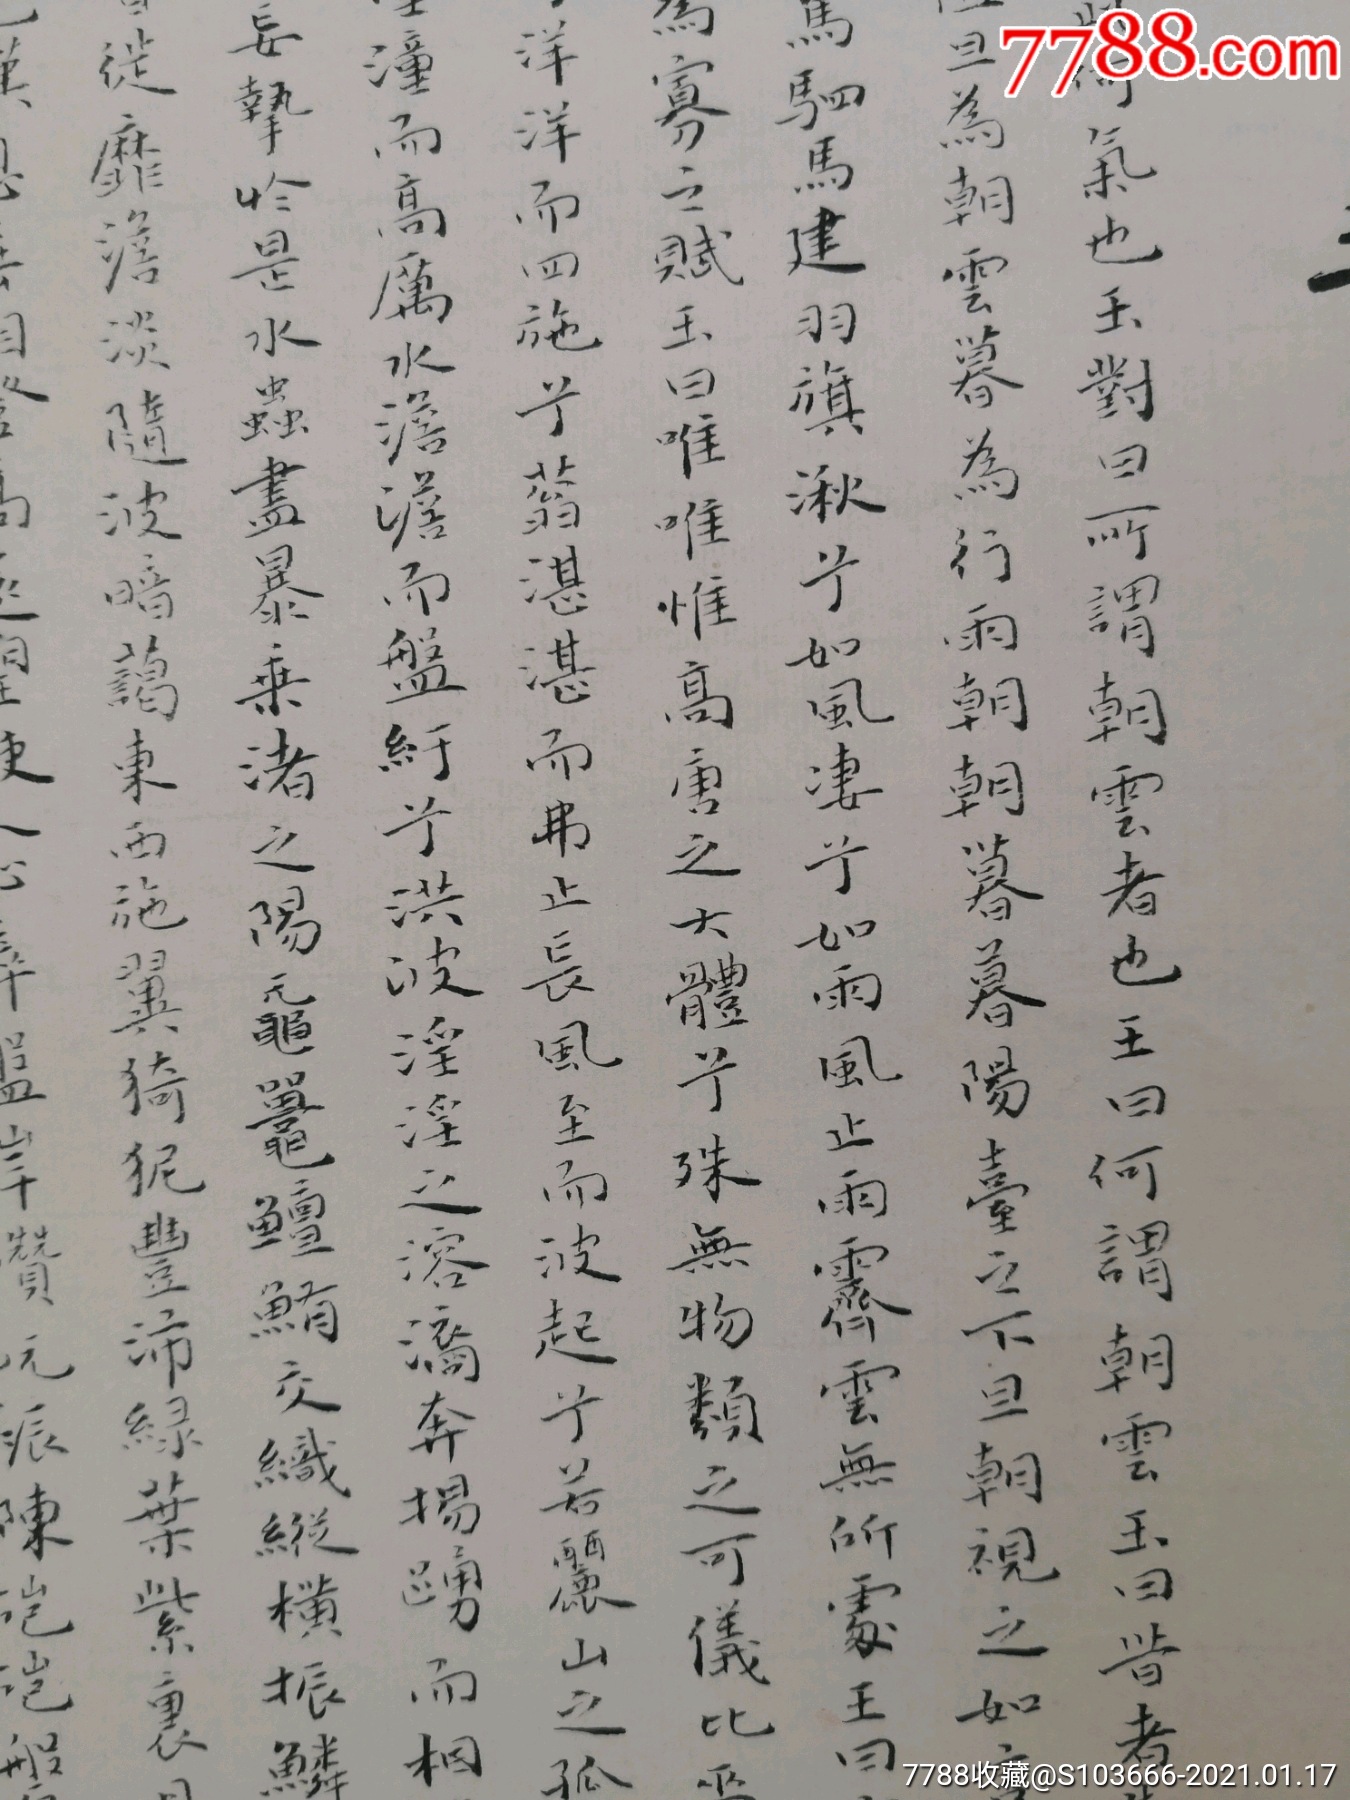 7788.com
何氣也玉對曰所謂朝雲者也王曰何謂朝雲玉曰昔者
旦為朝雲暮為行雨朝朝暮暮陽臺之下旦朝視之如
馬駟馬建羽旗湫兮如風凄兮如雨風止雨霽雲無所處王曰
為寡人賦玉曰唯唯惟高唐之大體兮殊無物類之可儀比巫
洋洋而四施兮蓊湛湛而弗止長風至而波起兮若麗山之孤
潼而高厲水澹澹而盤紆兮洪波淫淫之溶㵝奔揚踴而相
妄摯於是水蟲盡暴乘渚之陽黿鼉鱣鮪交織縱橫振鱗
徙靡澹淡隨波暗藹東西施翼猗狔豐沛綠葉紫裹
7788收藏@S103666-2021.01.17